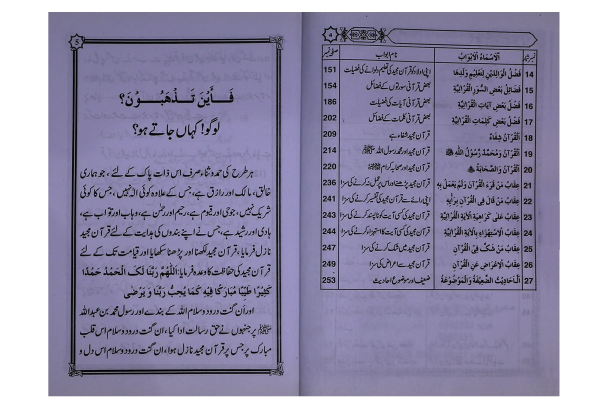 4
نمبر شمار | اَلْاَسْمَاءُ الْاَبْوَابُ | نام ابواب | صفحہ نمبر
14 | فَضْلُ الْوَالِدَيْنِ لِتَعْلِيْمِ وَلَدِهِمَا | اپنی اولاد کو قرآن مجید کی تعلیم دلوانے کی فضیلت | 151
15 | فَضَائِلُ بَعْضِ السُّوَرِ الْقُرْآنِيَّةِ | بعض قرآنی سورتوں کے فضائل | 154
16 | فَضْلُ بَعْضِ آيَاتِ الْقُرْآنِيَّةِ | بعض قرآنی آیات کی فضیلت | 186
17 | فَضْلُ بَعْضِ كَلِمَاتِ الْقُرْآنِيَّةِ | بعض قرآنی کلمات کے فضائل | 202
18 | اَلْقُرْآنُ شِفَاءٌ | قرآن مجید شفاء ہے | 209
19 | اَلْقُرْآنُ وَمُحَمَّدٌ رَّسُوْلُ اللهِ ﷺ | قرآن مجید اور محمد رسول اللہ ﷺ | 214
20 | اَلْقُرْآنُ وَالصَّحَابَةُ | قرآن مجید اور صحابہ کرام | 220
21 | عِقَابُ مَنْ قَرَءَ الْقُرْآنَ وَلَمْ يَعْمَلْ بِهِ | قرآن مجید پڑھنے اور اس پر عمل نہ کرنے کی سزا | 236
22 | عِقَابُ مَنْ قَالَ فِي الْقُرْآنِ بِرَأْيِهِ | اپنی رائے سے قرآن مجید کی تفسیر کرنے کی سزا | 241
23 | عِقَابُ عَلٰى كَرَاهِيَةِ الْآيَةِ الْقُرْآنِيَّةِ | قرآن مجید کی کسی آیت کو ناپسند کرنے کی سزا | 243
24 | عِقَابُ الْاِسْتِهْزَاءِ بِالْآيَةِ الْقُرْآنِيَّةِ | قرآن مجید کی کسی آیت کا استہزاء کرنے کی سزا | 244
25 | عِقَابُ مَنْ شَكَّ فِي الْقُرْآنِ | قرآن مجید میں شک کرنے کی سزا | 247
26 | عِقَابُ الْاِعْرَاضِ عَنِ الْقُرْآنِ | قرآن مجید سے اعراض کی سزا | 249
27 | اَلْاَحَادِيْثُ الضَّعِيْفَةُ وَالْمَوْضُوْعَةُ | ضعیف اور موضوع احادیث | 253
5
فَـأَيْنَ تَـذْهَبُـوْنَ؟
لوگو! کہاں جاتے ہو؟
ہر طرح کی حمد و ثنا، صرف اس ذات پاک کے لئے، جو ہماری
خالق، مالک اور رازق ہے، جس کے علاوہ کوئی الٰہ نہیں، جس کا کوئی
شریک نہیں، جو حی اور قیوم ہے، رحیم اور رحمٰن ہے، وہاب اور تواب ہے،
ہادی اور رشید ہے، جس نے اپنے بندوں کی ہدایت کے لئے قرآن مجید
نازل فرمایا، قرآن مجید لکھنا اور پڑھنا سکھایا اور قیامت تک کے لئے
قرآن مجید کی حفاظت کا وعدہ فرمایا اَللّٰهُمَّ رَبَّنَا لَكَ الْحَمْدُ حَمْدًا
كَثِيْرًا طَيِّبًا مُبَارَكًا فِيْهِ كَمَا يُحِبُّ رَبُّنَا وَ يَرْضٰى
اور اَن گنت درود و سلام اللہ کے بندے اور رسول محمد بن عبداللہ
ﷺ پر جنہوں نے حق رسالت ادا کیا، ان گنت درود و سلام اس قلب
مبارک پر جس پر قرآن مجید نازل ہوا، ان گنت درود و سلام اس دل و